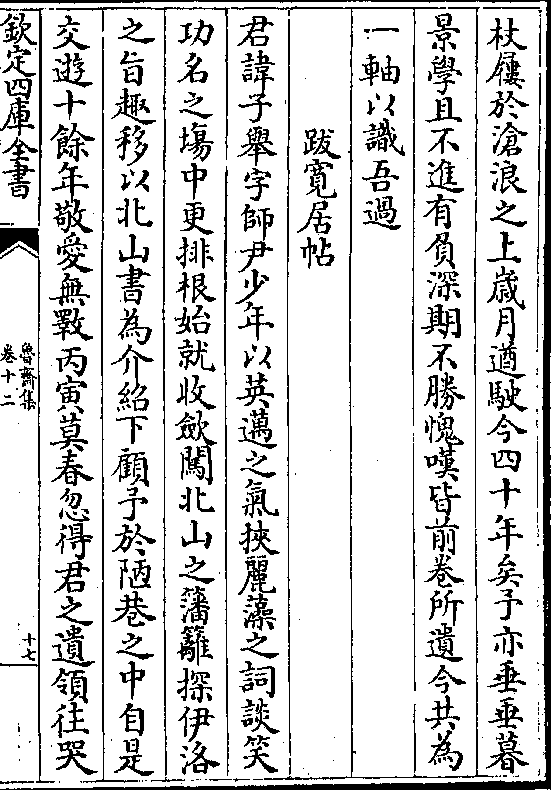 杖屨於滄浪之上歳月遒駛今四十年矣予亦垂垂暮
景學且不進有負深期不勝愧嘆皆前卷所遺今共為
一軸以識吾過
跋寛居帖
君諱子舉字師尹少年以英邁之氣挾麗藻之詞談笑
功名之塲中更排根始就收斂闖北山之籓籬探伊洛
之旨趣移以北山書為介紹下顧予於陋巷之中自是
交遊十餘年敬愛無斁丙寅莫春忽得君之遺領往哭
欽定四庫全書
魯齋集
卷十二
十七